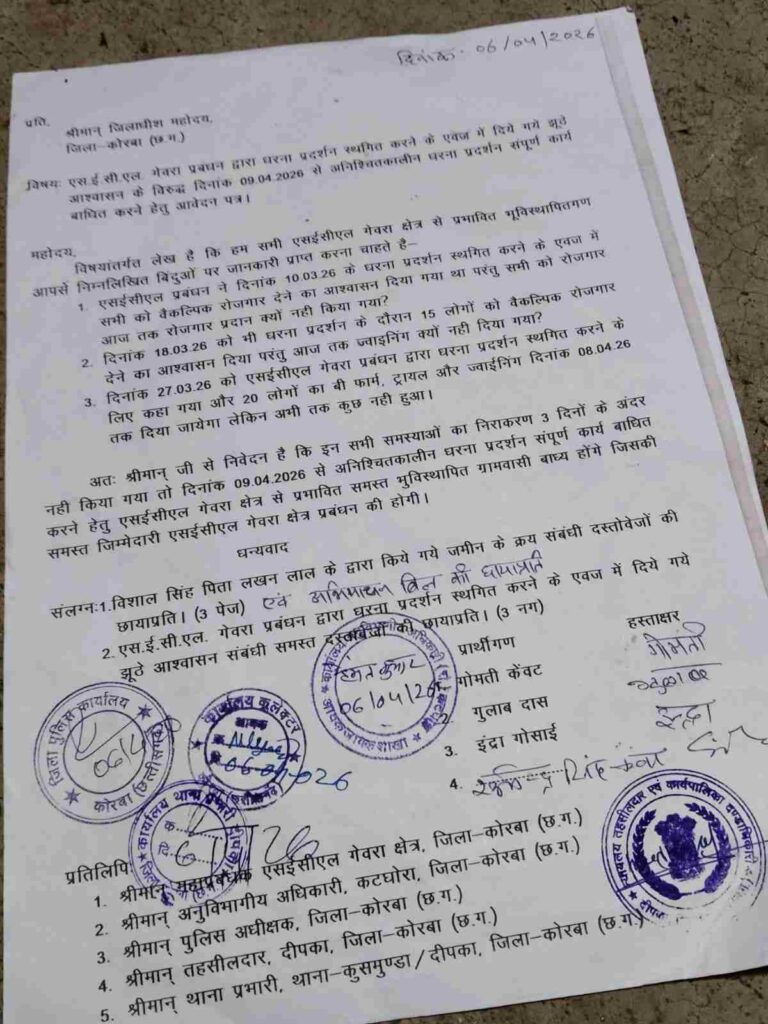 दिनांक- 06/04/2026
प्रति,
श्रीमान् जिलाधीश महोदय,
जिला-कोरबा (छ.ग.)
विषयः एस.ई.सी.एल. गेवरा प्रबंधन द्वारा धरना प्रदर्शन स्थगित करने के एवज में दिये गये झूठे
आश्वासन के विरुद्ध दिनांक 09.04.2026 से अनिश्चितकालीन धरना प्रदर्शन संपूर्ण कार्य
बाधित करने हेतु आवेदन पत्र।
महोदय,
विषयांतर्गत लेख है कि हम सभी एसईसीएल गेवरा क्षेत्र से प्रभावित भूविस्थापितगण
आपसे निम्नलिखित बिंदुओं पर जानकारी प्राप्त करना चाहते है-
1. एसईसीएल प्रबंधन ने दिनांक 10.03.26 के धरना प्रदर्शन स्थगित करने के एवज में
सभी को वैकल्पिक रोजगार देने का आश्वासन दिया गया था परंतु सभी को रोजगार
आज तक रोजगार प्रदान क्यों नही किया गया?
2. दिनांक 18.03.26 को भी धरना प्रदर्शन के दौरान 15 लोगों को वैकल्पिक रोजगार
देने का आश्वासन दिया परंतु आज तक ज्वाइनिंग क्यों नही दिया गया?
3. दिनांक 27.03.26 को एसईसीएल गेवरा प्रबंधन द्वारा धरना प्रदर्शन स्थगित करने के
लिए कहा गया और 20 लोगों का बी फार्म, ट्रायल और ज्वाईनिंग दिनांक 08.04.26
तक दिया जायेगा लेकिन अभी तक कुछ नही हुआ।
अतः श्रीमान् जी से निवेदन है कि इन सभी समस्याओं का निराकरण 3 दिनों के अंदर
नही किया गया तो दिनांक 09.04.2026 से अनिश्चितकालीन धरना प्रदर्शन संपूर्ण कार्य बाधित
करने हेतु एसईसीएल गेवरा क्षेत्र से प्रभावित समस्त भुविस्थापित ग्रामवासी बाध्य होंगे जिसकी
समस्त जिम्मेदारी एसईसीएल गेवरा क्षेत्र प्रबंधन की होगी।
धन्यवाद
संलग्नः 1. विशाल सिंह पिता लखन लाल के द्वारा किये गये जमीन के क्रय संबंधी दस्तोवेजों की
छायाप्रति। (3 पेज) एवं की छायाप्रति
2. एस.ई.सी.एल. गेवरा प्रबंधन द्वारा धरना प्रदर्शन स्थगित करने के एवज में दिये गये
झूठे आश्वासन संबंधी समस्त दस्तावेजों की छायाप्रति। (3 नग)
प्रार्थीगण हस्ताक्षर
गोमती केंवट गोमती
2. गुलाब दास
3. इंद्रा गोसाई इन्द्रा
4. सिंह कंवर
जिला पुलिस कार्यालय
06/4/26
कोरबा (छत्तीसगढ़)
कार्यालय कलेक्टर
आवक
06-04-026
(छत्तीसगढ़)
कार्यालय
06/04/26
आवक जावक शाखा
कार्यालय थाना प्रभारी दीपका
कार्यालय तहसीलदार एवं कार्यपालिक दण्डाधिकारी
प्रतिलिपि
1. श्रीमान् महाप्रबंधक एसईसीएल गेवरा क्षेत्र, जिला-कोरबा (छ.ग.)
2. श्रीमान् अनुविभागीय अधिकारी, कटघोरा, जिला-कोरबा (छ.ग.)
3. श्रीमान् पुलिस अधीक्षक, जिला-कोरबा (छ.ग.)
4. श्रीमान् तहसीलदार, दीपका, जिला-कोरबा (छ.ग.)
5. श्रीमान् थाना प्रभारी, थाना-कुसमुण्डा/दीपका, जिला-कोरबा (छ.ग.)